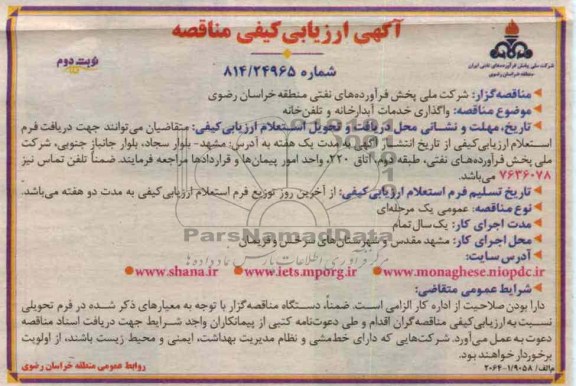 آگهی ارزیابی کیفی مناقصه
نوبت دوم
شماره ۸۱۴/۲۴۹۶۵
شرکت ملی پخش فرآورده‌های نفتی ایران
منطقه خراسان رضوی
مناقصه‌گزار: شرکت ملی پخش فرآورده‌های نفتی منطقه خراسان رضوی
موضوع مناقصه: واگذاری خدمات آبدارخانه و تلفن‌خانه
تاریخ، مهلت و نشانی محل دریافت و تحویل استعلام ارزیابی کیفی: متقاضیان می‌توانند جهت دریافت فرم
استعلام ارزیابی کیفی از تاریخ انتشار آگهی به مدت یک هفته به آدرس: مشهد- بلوار سجاد، بلوار جانباز جنوبی، شرکت
ملی پخش فرآورده‌های نفتی، طبقه دوم، اتاق ۲۲۰، واحد امور پیمان‌ها و قراردادها مراجعه فرمایند. ضمناً تلفن تماس نیز
۷۶۳۶۰۷۸ می‌باشد.
تاریخ تسلیم فرم استعلام ارزیابی کیفی: از آخرین روز توزیع فرم استعلام ارزیابی کیفی به مدت دو هفته می‌باشد.
نوع مناقصه: عمومی یک مرحله‌ای
مدت اجرای کار: یک سال تمام
محل اجرای کار: مشهد مقدس و شهرستان‌های سرخس و فریمان
ParsNamadData
مرکز فرآوری اطلاعات پارس نماد داده‌ها
آدرس سایت:
www.monaghese.niopdc.ir ● www.iets.mporg.ir ● www.shana.ir ●
شرایط عمومی متقاضی:
دارا بودن صلاحیت از اداره کار الزامی است. ضمناً، دستگاه مناقصه‌گزار با توجه به معیارهای ذکر شده در فرم تحویلی
نسبت به ارزیابی کیفی مناقصه‌گران اقدام و طی دعوت‌نامه کتبی از پیمانکاران واجد شرایط جهت دریافت اسناد مناقصه
دعوت به عمل می‌آورد. شرکت‌هایی که دارای خط‌مشی و نظام مدیریت بهداشت، ایمنی و محیط زیست باشند، از اولویت
برخوردار خواهند بود.
م/الف/ ۲۰۶۴-۱/۹۰۵۸
روابط عمومی منطقه خراسان رضوی